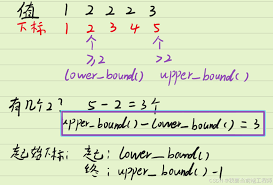 值 1 2 2 2 3
下标 1 2 3 4 5
≥2 >2
lower_bound() upper_bound()
有几个2? 5-2=3个
upper_bound()-lower_bound()=3
起始下标: 起: lower_bound()
终: upper_bound()-1